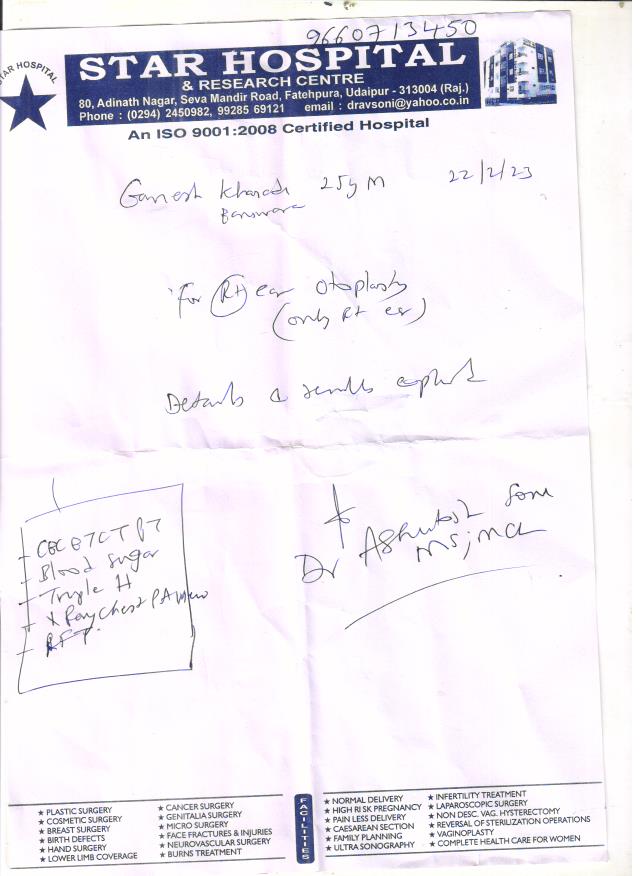 9660713450
STAR HOSPITAL
STAR HOSPITAL
& RESEARCH CENTRE
80, Adinath Nagar, Seva Mandir Road, Fatehpura, Udaipur - 313004 (Raj.)
Phone : (0294) 2450982, 99285 69121 email : dravsoni@yahoo.co.in
An ISO 9001:2008 Certified Hospital
Ganesh Kharadi 25y M 22/2/23
Banswara
For Rt ear otoplasty
(only Rt ear)
Details & results explained
CBC BT CT PT
Blood sugar
Triple H
X Ray Chest PA view
RFT
Dr Ashutosh Soni
MS; MCh
FACILITIES
★ PLASTIC SURGERY
★ COSMETIC SURGERY
★ BREAST SURGERY
★ BIRTH DEFECTS
★ HAND SURGERY
★ LOWER LIMB COVERAGE
★ CANCER SURGERY
★ GENITALIA SURGERY
★ MICRO SURGERY
★ FACE FRACTURES & INJURIES
★ NEUROVASCULAR SURGERY
★ BURNS TREATMENT
★ NORMAL DELIVERY
★ HIGH RISK PREGNANCY
★ PAIN LESS DELIVERY
★ CAESAREAN SECTION
★ FAMILY PLANNING
★ ULTRA SONOGRAPHY
★ INFERTILITY TREATMENT
★ LAPAROSCOPIC SURGERY
★ NON DESC. VAG. HYSTERECTOMY
★ REVERSAL OF STERILIZATION OPERATIONS
★ VAGINOPLASTY
★ COMPLETE HEALTH CARE FOR WOMEN